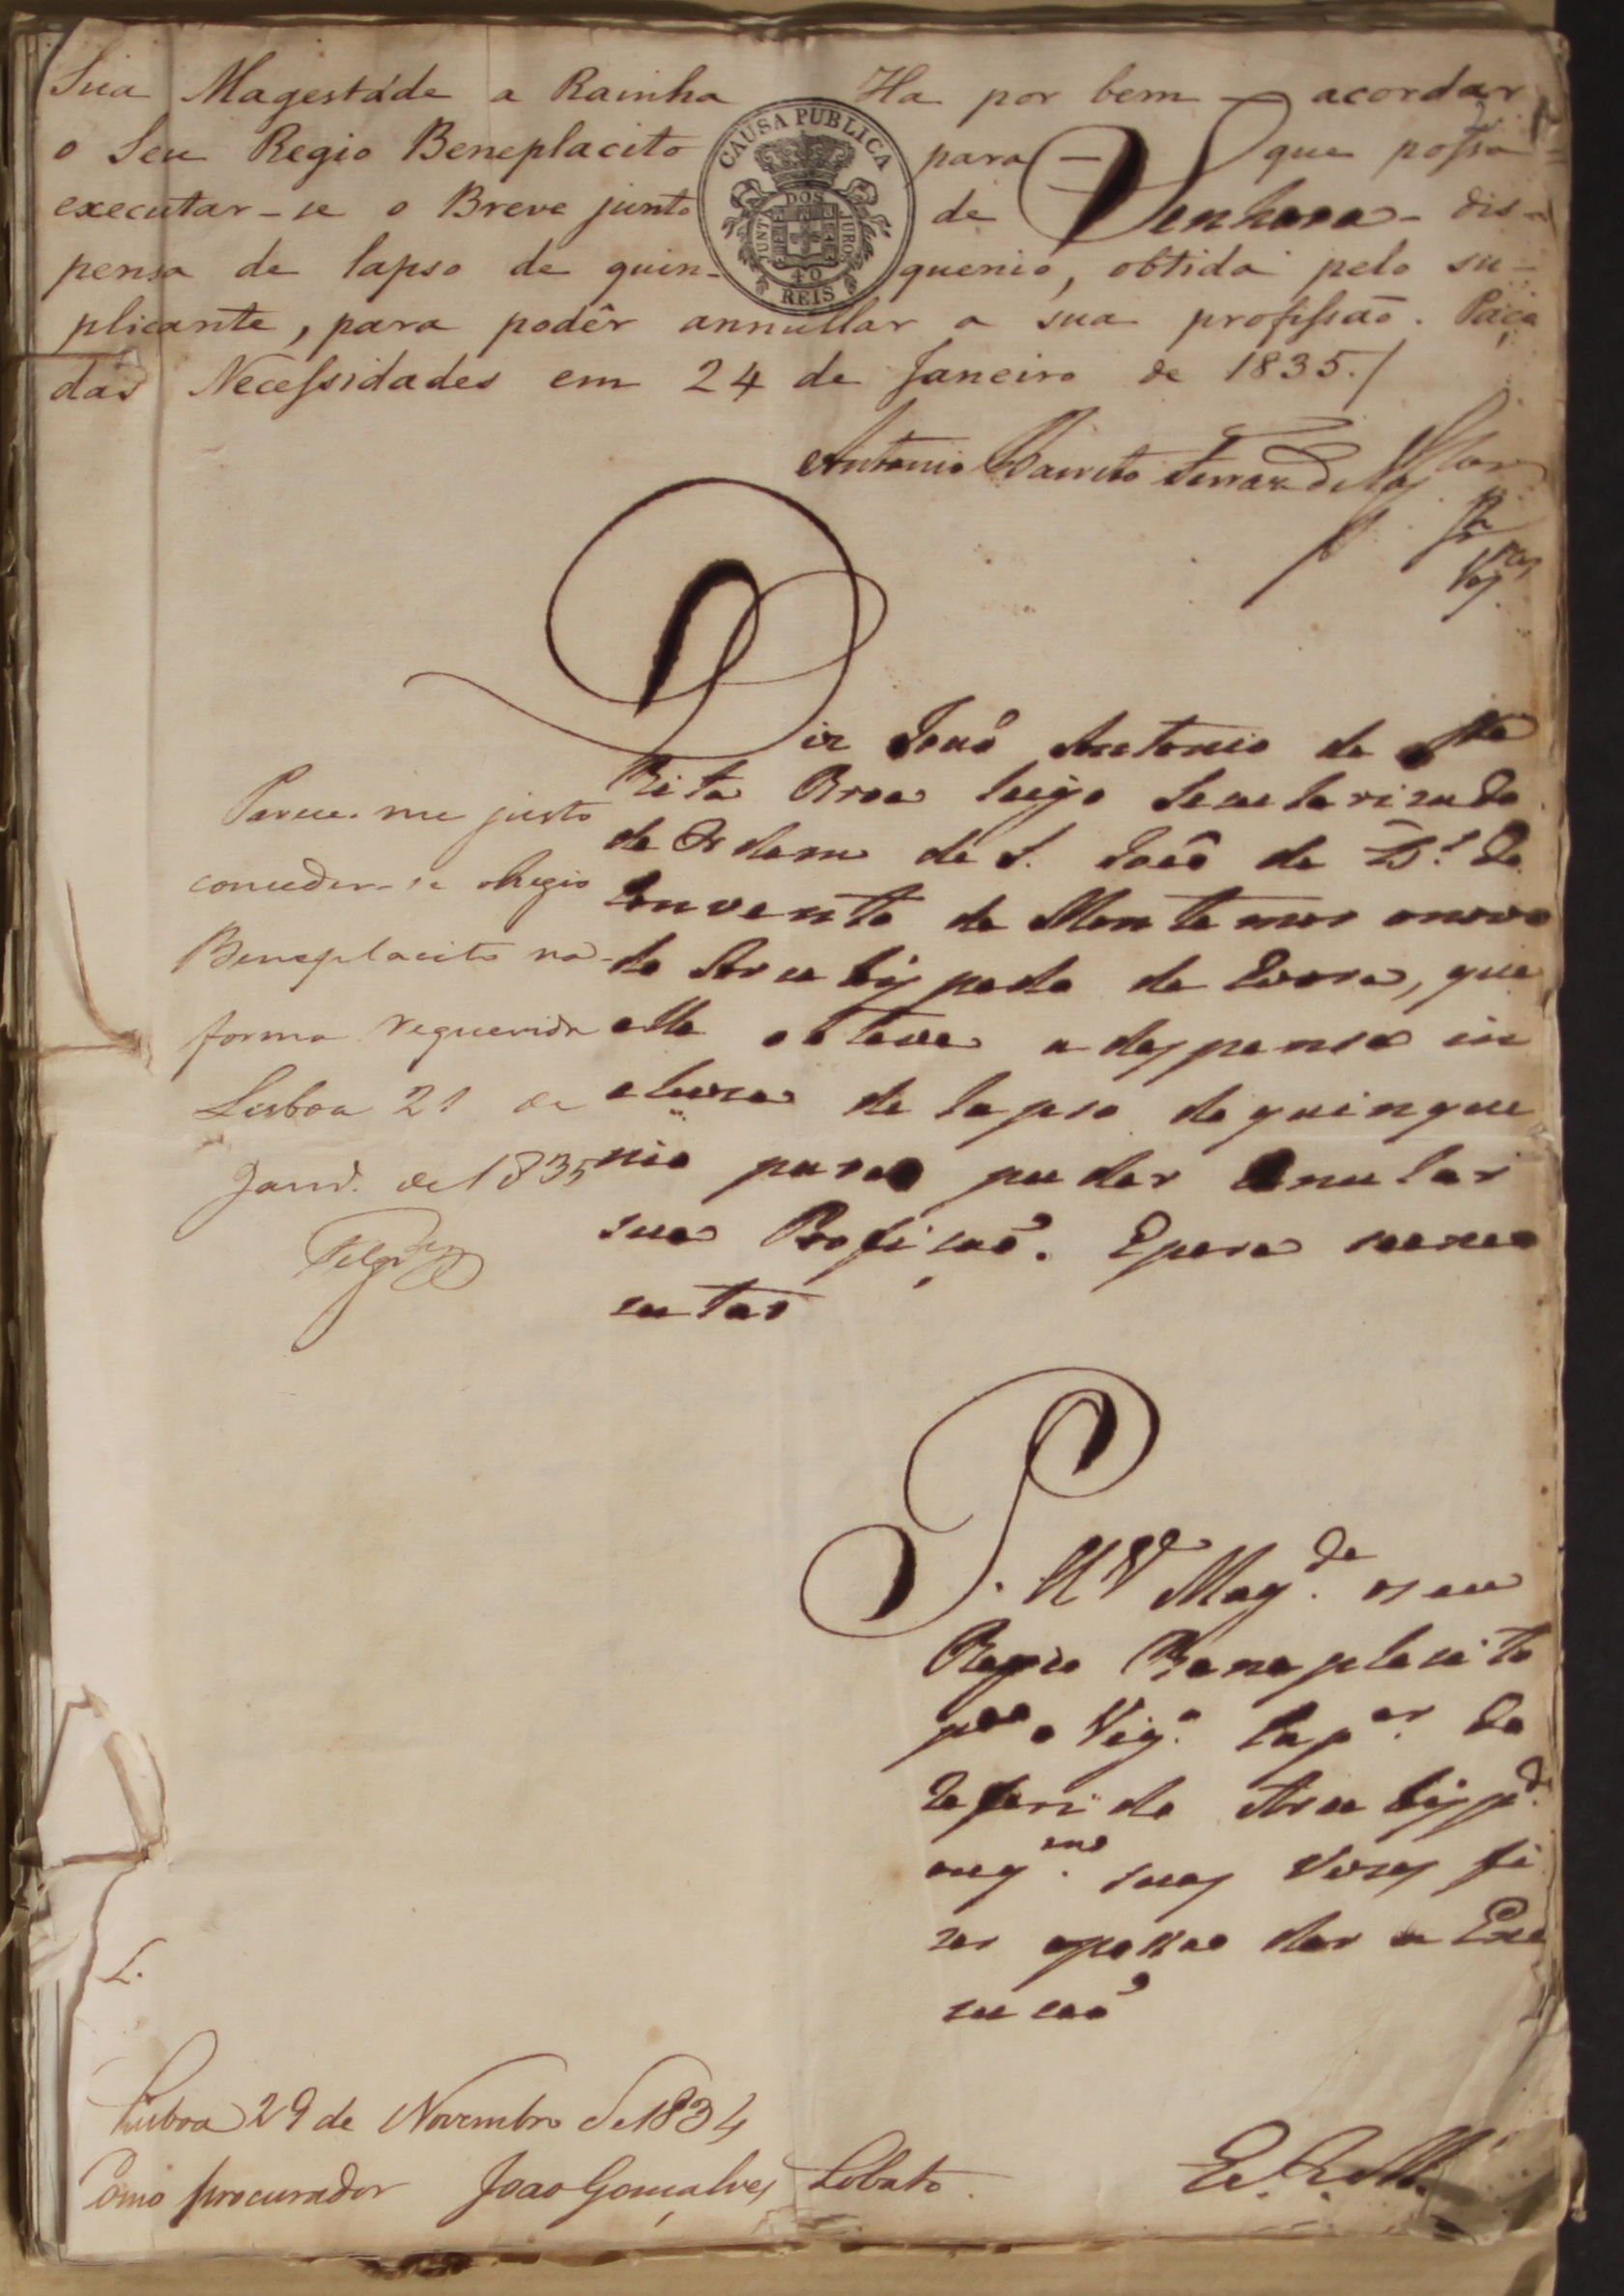 Sua Magestade a Rainha Ha por bem acordar
o Seu Regio Beneplacito para que possa
executar-se o Breve junto de dis-
pensa de lapso de quin- quenio, obtida pelo su-
plicante, para podêr annullar a sua profissão. Paço
das Necessidades em 24 de Janeiro de 1835./
CAUSA PUBLICA
JUNTA DOS JUROS
40
REIS
Senhora
Antonio Barreto Ferraz de Vas.
Diz João Antonio de Sta
Rita Broa leigo Secularizado
da Ordem de S. João de D.s do
Convento de Montemor onovo
do Arcebispado de Evora, que
elle obteve a despensa in
cluza de lapso de quinque
nio para puder Anular
sua Profisão. E para
cutar
Parece-me justo
conceder-se o Regio
Beneplacito na
forma requerida
Lisboa 21 de
Janr.º de 1835
P. a V. Mag.de o seu
Regio Beneplacito
p.a o Vig.o Cap.ar do
referido Arcebispd.o
ouq.m suas vezes fi
zer o possa dar a Exe
cucão
L.
Lisboa 29 de Novembro de 1834
Como procurador João Gonçalves Lobato.
E. R. M.